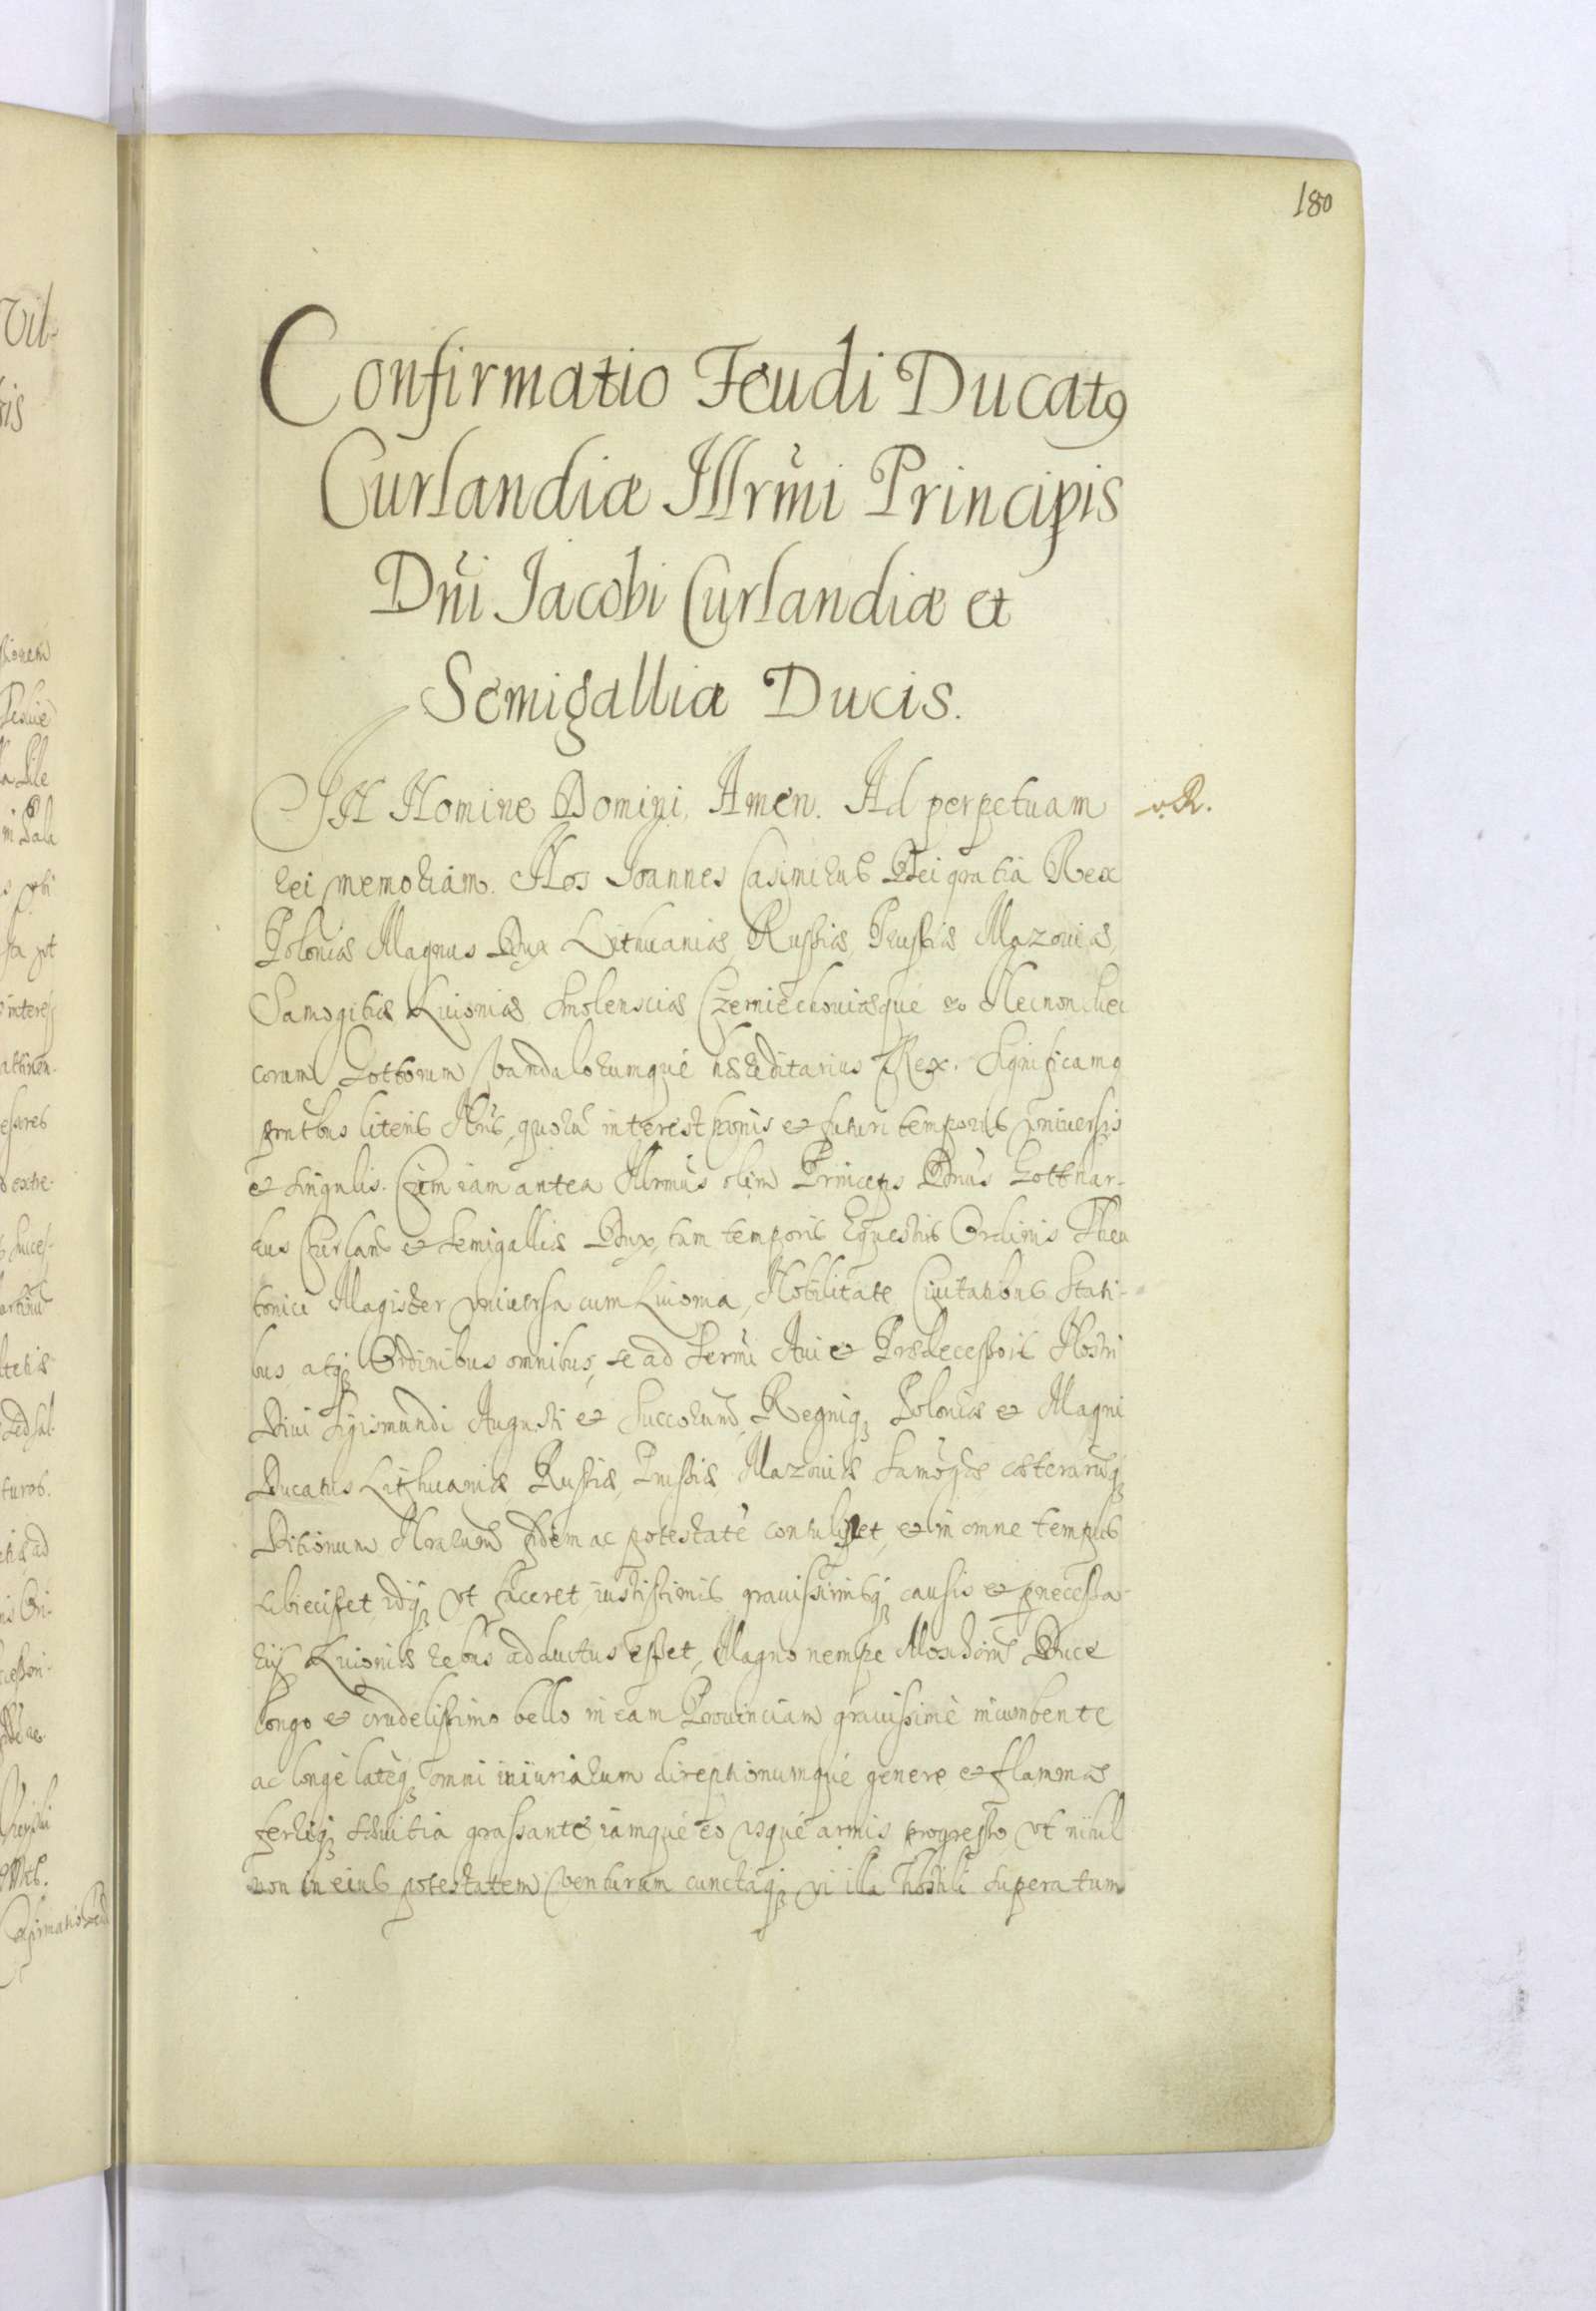 180
Confirmatio Feudi Ducatꝰ
Curlandiæ Illrmi Principis
Dni Jacobi Curlandiæ et
Semigalliæ Ducis.
IN Nomine Domini, Amen. Ad perpetuam
rei memoriam. Nos Joannes Casimirus Dei gratia Rex
Poloniæ Magnus Dux Lithuaniæ, Russiæ, Prussiæ Mazouiæ,
Samogitiæ Liuoniæ Smolensciæ Czerniechouiæque &c Necnon Sue
corum Gottorum Vandalorumque hæreditarius Rex. Significamꝰ
pntibus literis Nris, quorũ interest pntis et futuri temporis vniuersis
et singulis. Cum iam antea Illrmus olim Princeps Dnus Gotthar-
dus Curland et Semigalliæ Dux, tum temporis Equestris Ordinis Theu
tonici Magister vniuersa cum Liuonia, Nobilitate Ciuitatibus Stati-
bus, atqꝫ Ordinibus omnibus, se ad Sermi Aui et Prædecessoris Nostri
Diui Sigismundi Augusti et Succorund, Regniqꝫ Poloniæ et Magni
Ducatus Lithuaniæ Russiæ, Prussiæ Mazouiæ Samogæ cæterarũqꝫ
Ditionum Nrarum fidem ac potestatẽ contulisset, et in omne tempus
subiecisset, idqꝫ vt faceret, iustissimis grauissimisqꝫ causis et pnecessa-
rijs Liuoniæ rebus adductus esset, Magno nempe Moschorũ Duce
longo et crudelissimo bello in eam Prouinciam grauissimè incumbente
ac longè latèqꝫ omni iniuriarum direptionumque genere et flammas
ferriqꝫ sæuitia grassante, iamque eo vsque armis progresso, vt nihil
non in eius potestatem venturum cunctaqꝫ vi illa hostili superatum